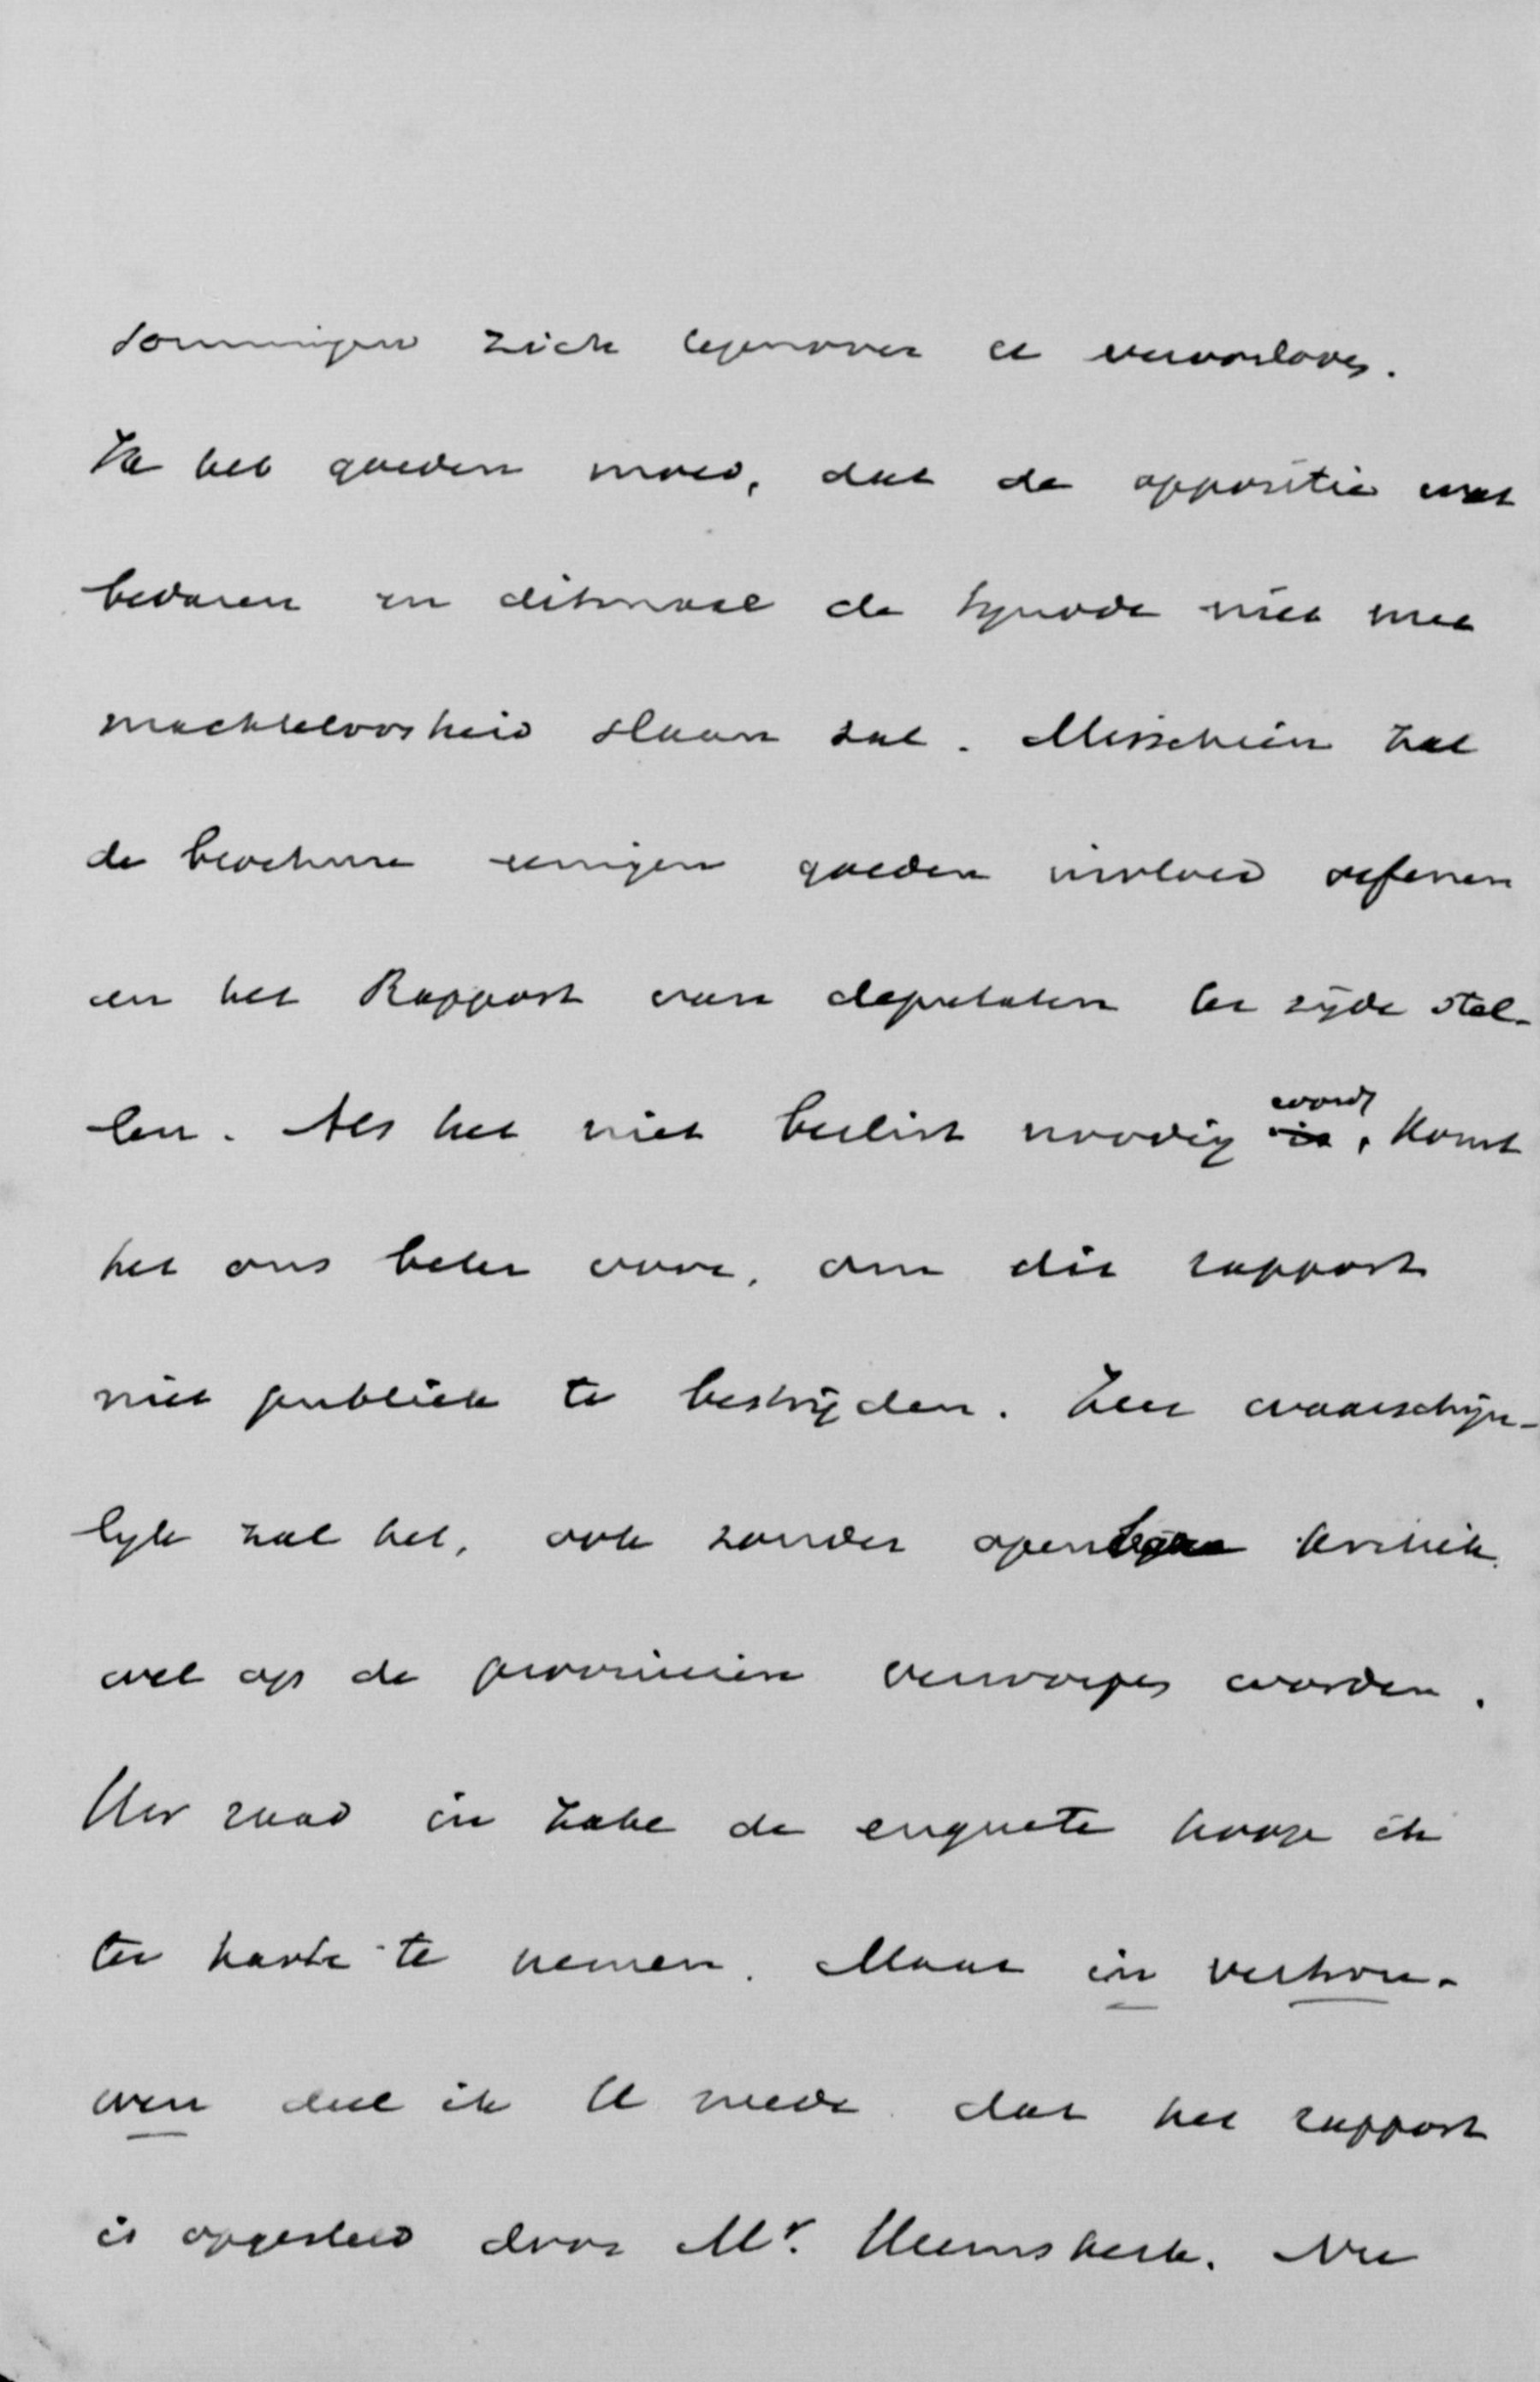 sommigen zich tegenover U veroorloven.
Ik heb goeden moed, dat de oppositie wat
bedaren en ditmaal de Synode niet met
machteloosheid slaan zal. Misschien zal
de brochure eenigen goeden invloed oefenen
en het Rapport van deputaten ter zijde stel-
len. Als het niet beslist noodig wordt, komt
het ons beter voor, om dit rapport
niet publiek te bestrijden. Zeer waarschijn-
lijk zal het, ook zonder open kritiek
wel op de provinciën verworpen worden.
Uw raad in zake de enquete hoop ik
ter harte te nemen. Maar in vertrou-
wen deel ik U mede dat het rapport
is opgesteld door Mr. Heemskerk. Nu